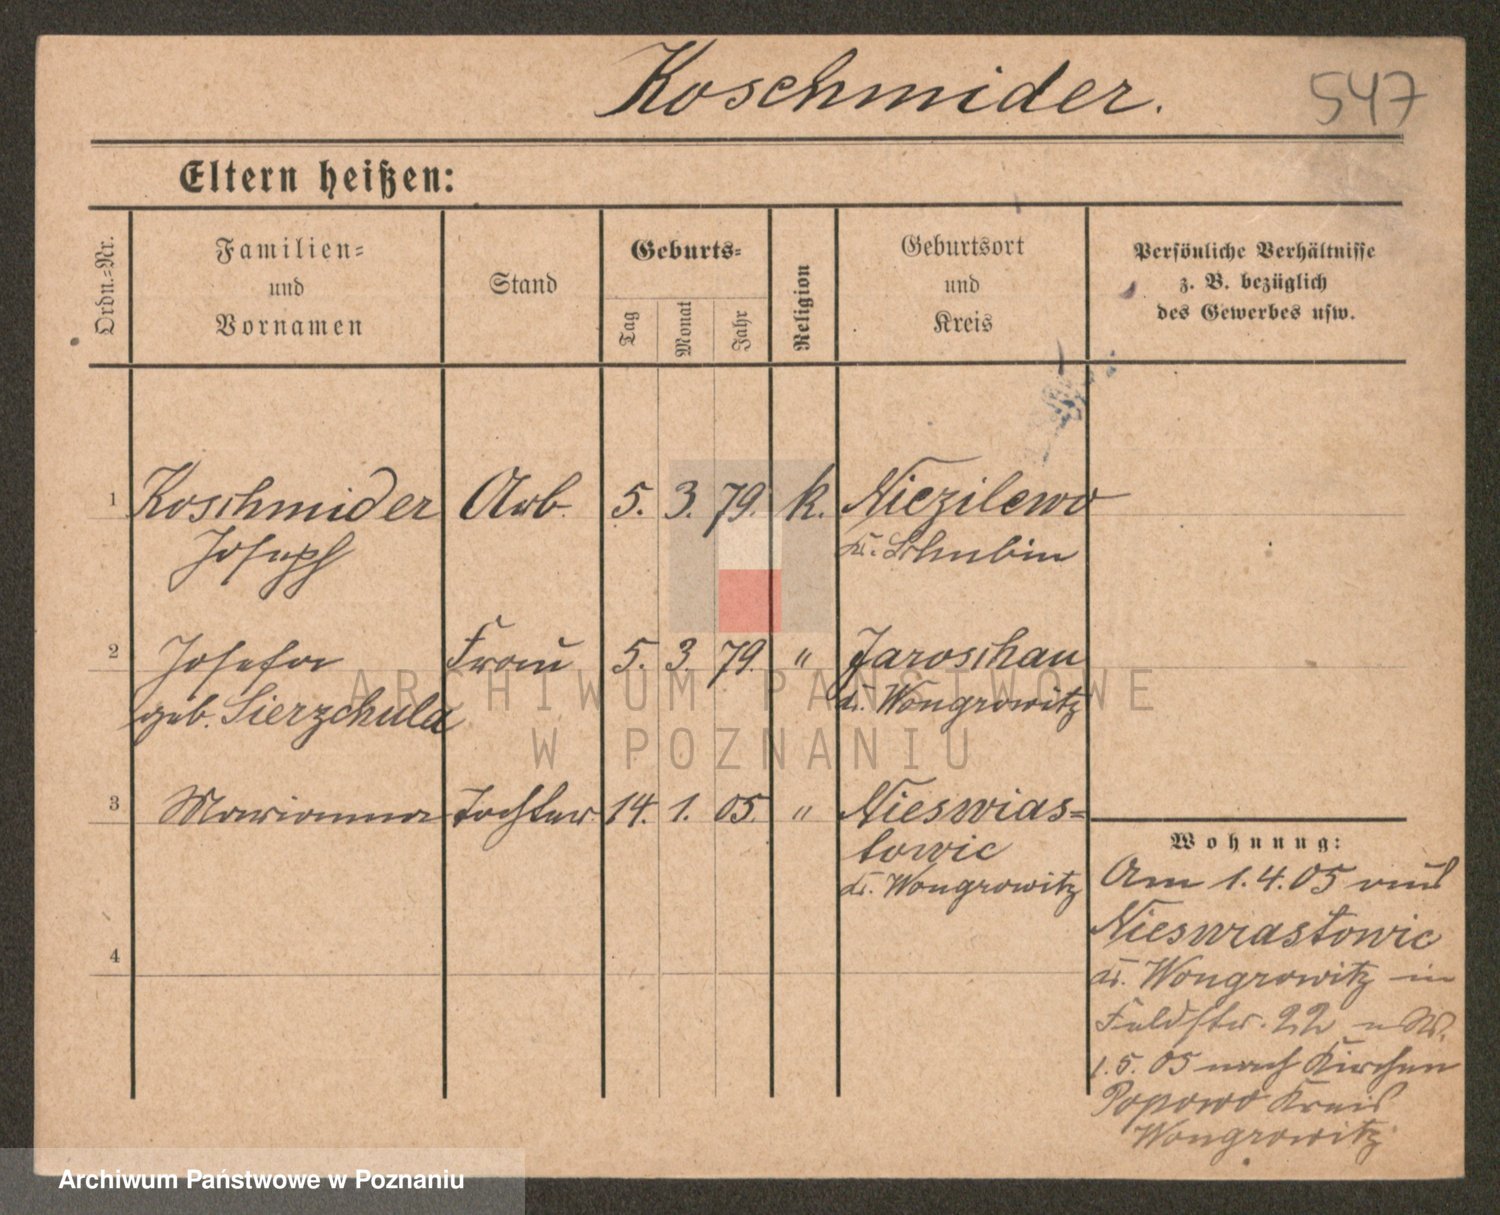 Koschmider.
547
Eltern heißen:
Ordn.=Nr.
Familien=
und
Vornamen
Stand
Geburts=
Tag
Monat
Jahr
Religion
Geburtsort
und
Kreis
Persönliche Verhältnisse
z. B. bezüglich
des Gewerbes usw.
1 Koschmider Arb. 5. 3. 79. k. Niezilewo
Joseph Kr. Schubin
2 Josefa Frau 5. 3. 79. " Jaroschau
geb. Sierzchula Kr. Wongrowitz
3 Marianna Tochter 14. 1. 05. " Nieswias=
towic
Kr. Wongrowitz
4
Wohnung:
Am 1.4.05 aus
Nieswiastowic
Kr. Wongrowitz in
Feldstr. 22
1.5.05 nach Kirchen
Popowo Kreis
Wongrowitz
ARCHIWUM PAŃSTWOWE
W POZNANIU
Archiwum Państwowe w Poznaniu